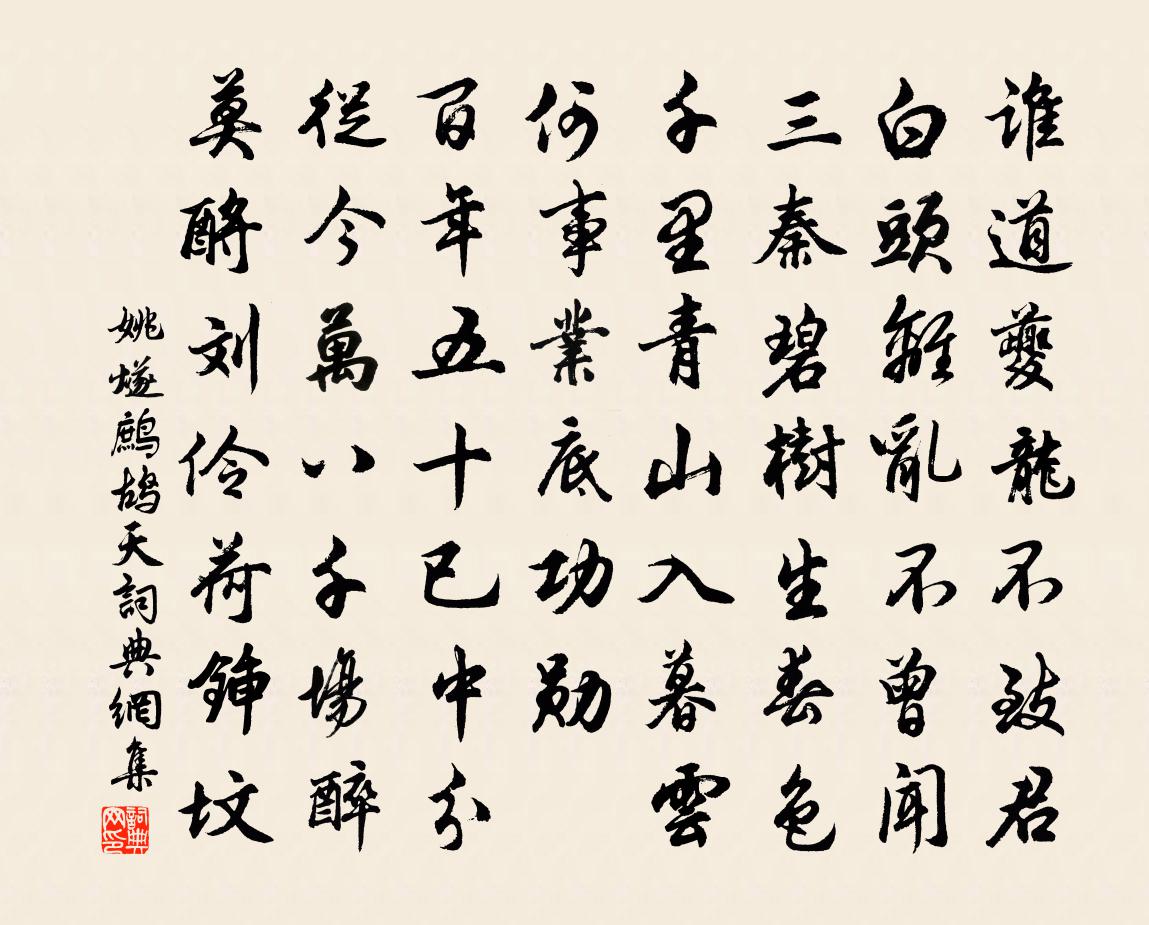 谁道夔龍不致君
白頭離亂不曾聞
三秦碧樹生春色
千里青山入暮雲
何事業底功勋
百年五十已中分
從今萬八千場醉
莫酹刘伶荷鍤坟
姚燧鷓鴣天詞典網集
詞典网印